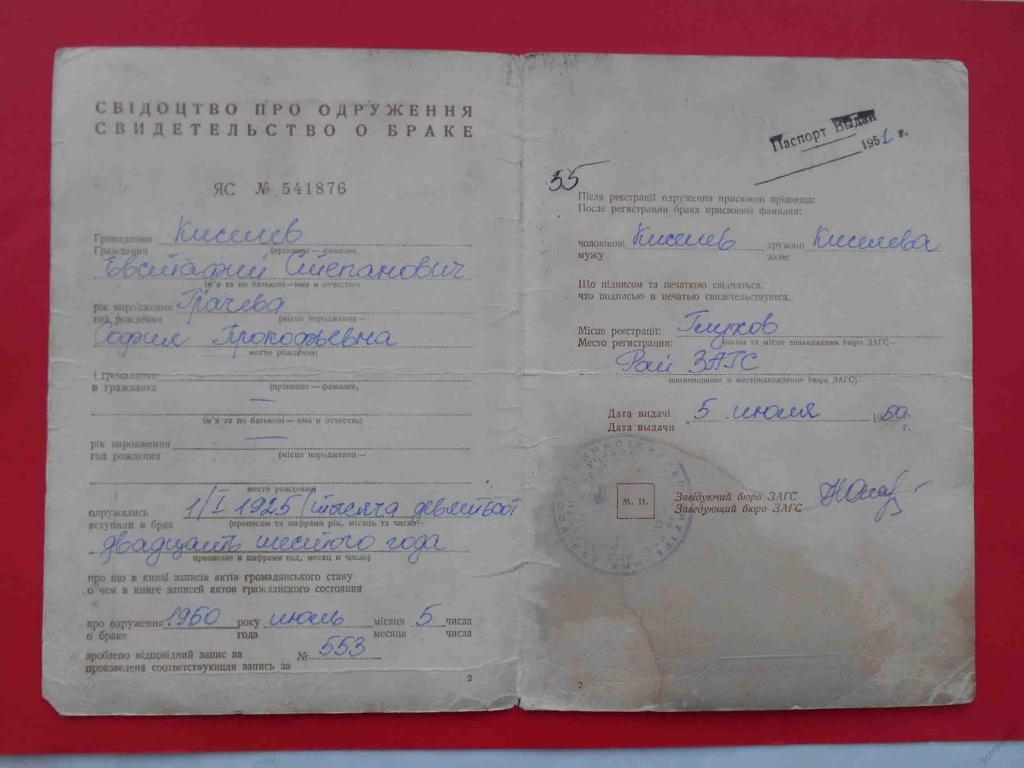 СВІДОЦТВО ПРО ОДРУЖЕННЯ
СВИДЕТЕЛЬСТВО О БРАКЕ
ЯС № 541876
Громадянин Киселев
Гражданин (прізвище — фамилия,
Евстафий Степанович
ім'я та по батькові — имя и отчество)
рік народження Грачева
год рождения (місце народження —
София Прокофьевна
место рождения)
і громадянка
и гражданка (прізвище — фамилия,
—
ім'я та по батькові — имя и отчество)
рік народження —
год рождения (місце народження —
место рождения)
одружились 1/I 1925 /тысяча девятьсот
вступили в брак (прописом та цифрами рік, місяць та число —
двадцать шестого года
прописью и цифрами год, месяц и число)
про що в книзі записів актів громадянського стану
о чем в книге записей актов гражданского состояния
про одруження 1950 року июль місяця 5 числа
о браке года месяца числа
зроблено відповідний запис за № 553
произведена соответствующая запись за
2
Паспорт Выдан
1951 г.
55
Після реєстрації одруження присвоєно прізвища:
После регистрации брака присвоены фамилии:
чоловікові Киселев дружині Киселева
мужу жене
Що підписом та печаткою свідчиться,
что подписью и печатью свидетельствуется.
Місце реєстрації: Глухов
Место регистрации: (назва та місце знаходження бюро ЗАГС —
Рай ЗАГС
наименование и местонахождение бюро ЗАГС)
Дата видачі 5 июля 1950
Дата выдачи г.
М. П.
Завідуючий бюро ЗАГС
Заведующий бюро ЗАГС
2